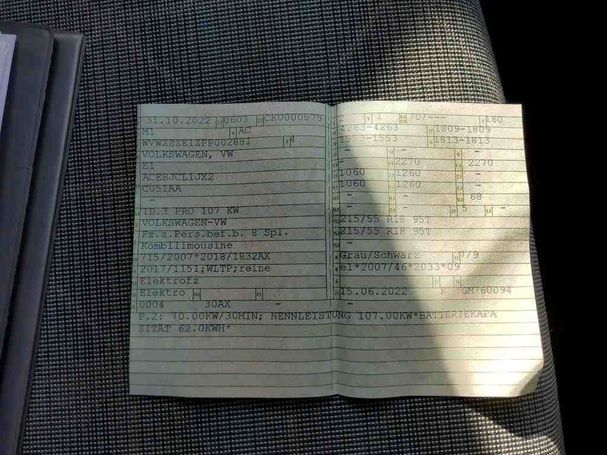 31.10.2022 0603 CK0000575
M1 AC
WVWZZZE1ZPP002881
VOLKSWAGEN, VW
E1
ACEBJCL1JX2
CU51AA
-
ID.3 PRO 107 KW
VOLKSWAGEN-VW
Fz.z.Pers.bef.b. 8 Spl.
Kombilimousine
715/2007*2018/1832AX
2017/1151;WLTP;reine
Elektrofz
Elektro
0004 30AX - -
P.2: 70.00KW/30MIN; NENNLEISTUNG 107.00KW*BATTERIEKAPA
ZITÄT 62.0KWH*
1 70/--- 160
4263-4263 1809-1809
1553-1553 1813-1813
- - -
- 2270 2270
1060 1260 -
1060 1260 -
- - 68
- 5 -
215/55 R18 95T
215/55 R18 95T
-
-
Grau/Schwarz 7/9
e1*2007/46*2033*09
15.06.2022 K GM760094